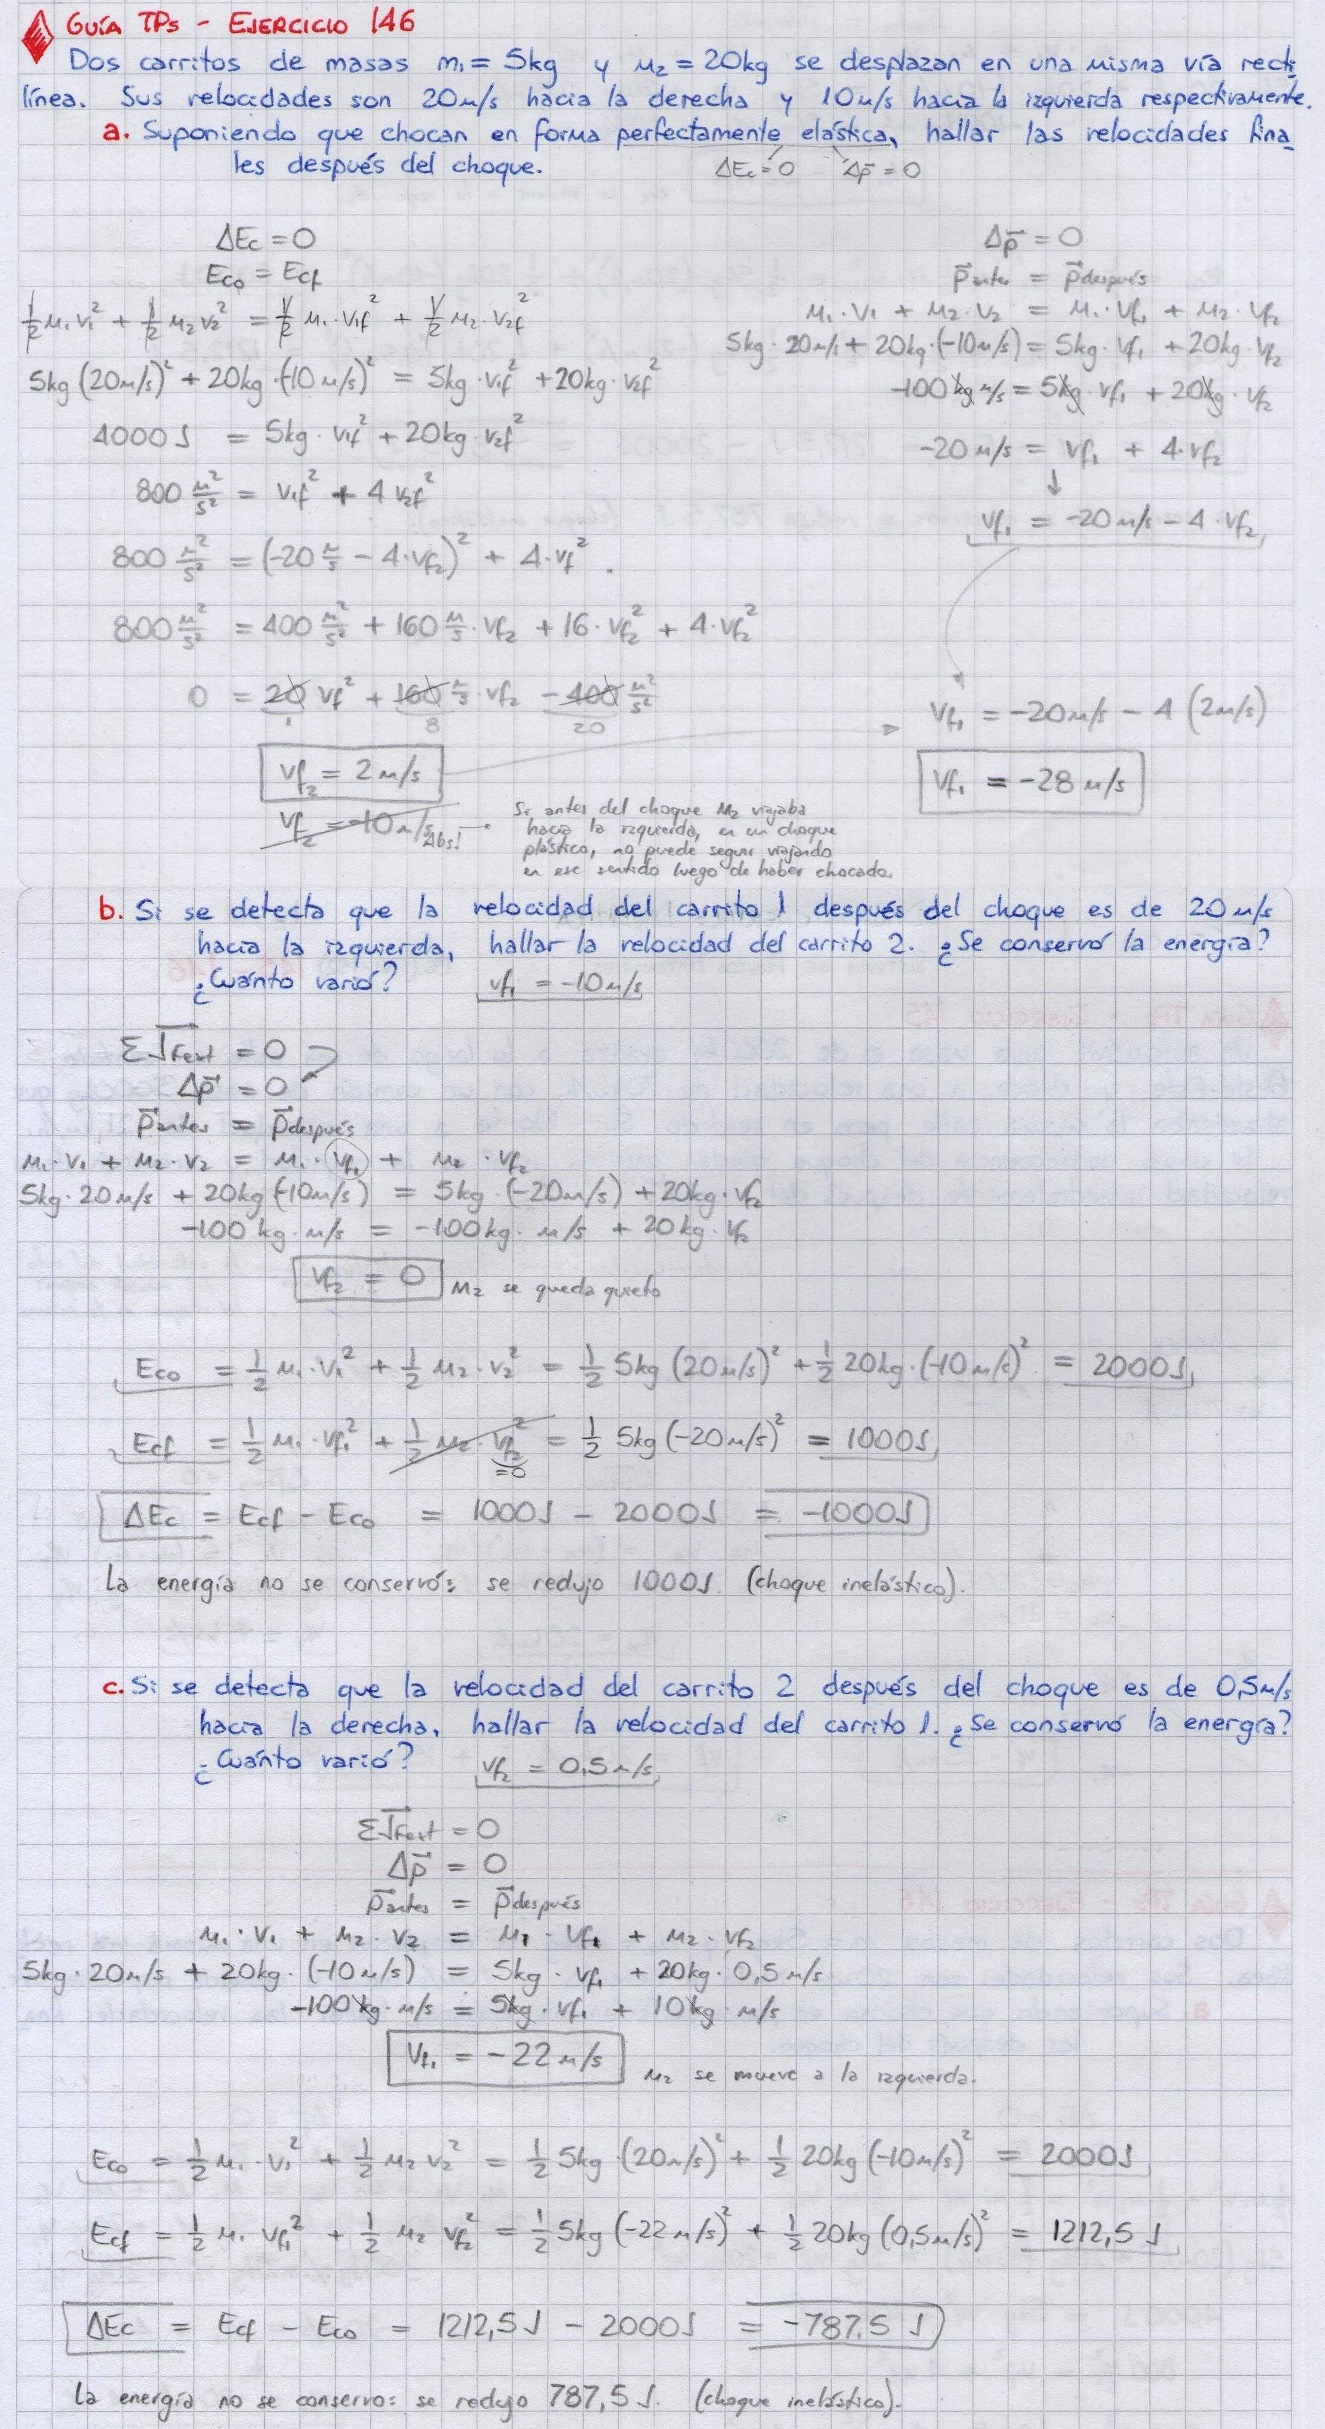 GUÍA TPs - EJERCICIO 146
Dos carritos de masas m₁ = 5kg y m₂ = 20kg se desplazan en una misma vía recti
línea. Sus velocidades son 20m/s hacia la derecha y 10m/s hacia la izquierda respectivamente.
a. Suponiendo que chocan en forma perfectamente elástica, hallar las velocidades fina
les después del choque. ΔEc = 0 Δp⃗ = 0
ΔEc = 0
Ec₀ = Ecf
½ m₁ v₁² + ½ m₂ v₂² = ½ m₁ · v₁f² + ½ m₂ · v₂f²
5kg (20m/s)² + 20kg · (-10m/s)² = 5kg · v₁f² + 20kg · v₂f²
4000 J = 5kg · v₁f² + 20kg · v₂f²
800 m²/s² = v₁f² + 4 v₂f²
800 m²/s² = (-20 m/s - 4 · vf₂)² + 4 · vf².
800 m²/s² = 400 m²/s² + 160 m/s · vf₂ + 16 · vf₂² + 4 · vf₂²
0 = 20 vf² + 160 m/s · vf₂ - 400 m²/s²
1 8 20
vf₂ = 2 m/s
vf₂ = -10 m/s Abs!
Si antes del choque m₂ viajaba
hacia la izquierda, en un choque
plástico, no puede seguir viajando
en ese sentido luego de haber chocado.
Δp⃗ = 0
p⃗antes = p⃗después
m₁ · v₁ + m₂ · v₂ = m₁ · vf₁ + m₂ · vf₂
5kg · 20m/s + 20kg · (-10m/s) = 5kg · vf₁ + 20kg · vf₂
-100 kg m/s = 5kg · vf₁ + 20kg · vf₂
-20 m/s = vf₁ + 4 · vf₂
↓
vf₁ = -20m/s - 4 · vf₂
vf₁ = -20m/s - 4 (2m/s)
vf₁ = -28 m/s
b. Si se detecta que la velocidad del carrito 1 después del choque es de 20m/s
hacia la izquierda, hallar la velocidad del carrito 2. ¿Se conservó la energía?
¿Cuánto varió? vf₁ = -10m/s
ΣJ⃗Fext = 0
Δp⃗ = 0
p⃗antes = p⃗después
m₁ · v₁ + m₂ · v₂ = m₁ · vf₁ + m₂ · vf₂
5kg · 20m/s + 20kg (-10m/s) = 5kg · (-20m/s) + 20kg · vf₂
-100 kg · m/s = -100kg · m/s + 20kg · vf₂
vf₂ = 0 m₂ se queda quieto
Ec₀ = ½ m₁ · v₁² + ½ m₂ · v₂² = ½ 5kg (20m/s)² + ½ 20kg · (-10m/s)² = 2000J
Ecf = ½ m₁ · vf₁² + ½ m₂ · vf₂² = ½ 5kg (-20m/s)² = 1000J
=0
ΔEc = Ecf - Ec₀ = 1000J - 2000J = -1000J
La energía no se conservó: se redujo 1000J. (choque inelástico).
c. Si se detecta que la velocidad del carrito 2 después del choque es de 0,5m/s
hacia la derecha, hallar la velocidad del carrito 1. ¿Se conservó la energía?
¿Cuánto varió? vf₂ = 0,5m/s
ΣJ⃗Fext = 0
Δp⃗ = 0
p⃗antes = p⃗después
m₁ · v₁ + m₂ · v₂ = m₁ · vf₁ + m₂ · vf₂
5kg · 20m/s + 20kg · (-10m/s) = 5kg · vf₁ + 20kg · 0,5m/s
-100kg · m/s = 5kg · vf₁ + 10kg · m/s
Vf₁ = -22m/s m₂ se mueve a la izquierda.
Ec₀ = ½ m₁ · v₁² + ½ m₂ v₂² = ½ 5kg · (20m/s)² + ½ 20kg (-10m/s)² = 2000J
Ecf = ½ m₁ vf₁² + ½ m₂ vf₂² = ½ 5kg (-22m/s)² + ½ 20kg (0,5m/s)² = 1212,5 J
ΔEc = Ecf - Ec₀ = 1212,5J - 2000J = -787,5 J
La energía no se conservo: se redujo 787,5J. (choque inelástico).